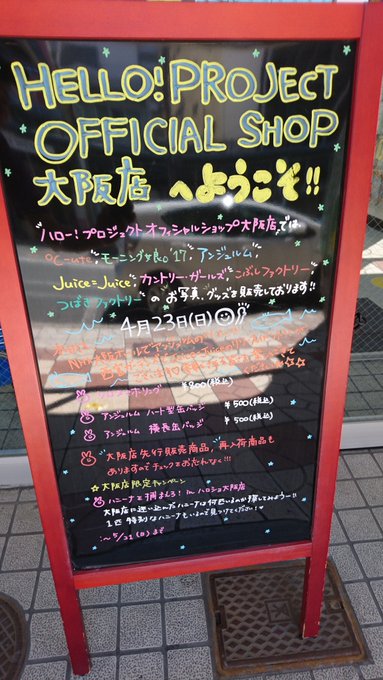 HELLO! PROJECT
OFFICIAL SHOP
大阪店 へようこそ!!
ハロー!プロジェクトオフィシャルショップ大阪店では、
℃-ute, モーニング娘。'17, アンジュルム,
Juice=Juice, カントリー・ガールズ, こぶしファクトリー,
つばきファクトリー の お写真、グッズを販売しております!!
4月23日(日)
¥800(税込)
アンジュルム ハート型缶バッジ ¥500(税込)
アンジュルム 横長缶バッジ ¥500(税込)
大阪店先行販売商品, 再入荷商品も
ありますので チェックをお忘れなく!!!
☆大阪店限定キャンペーン
ハニーナを捕まえろ! in ハロショ大阪店
大阪店に迷い込んだハニーナは何匹いるのか探してみよう!!
1匹 特別なハニーナもいるので見つけてください!
:~5/21(日)まで